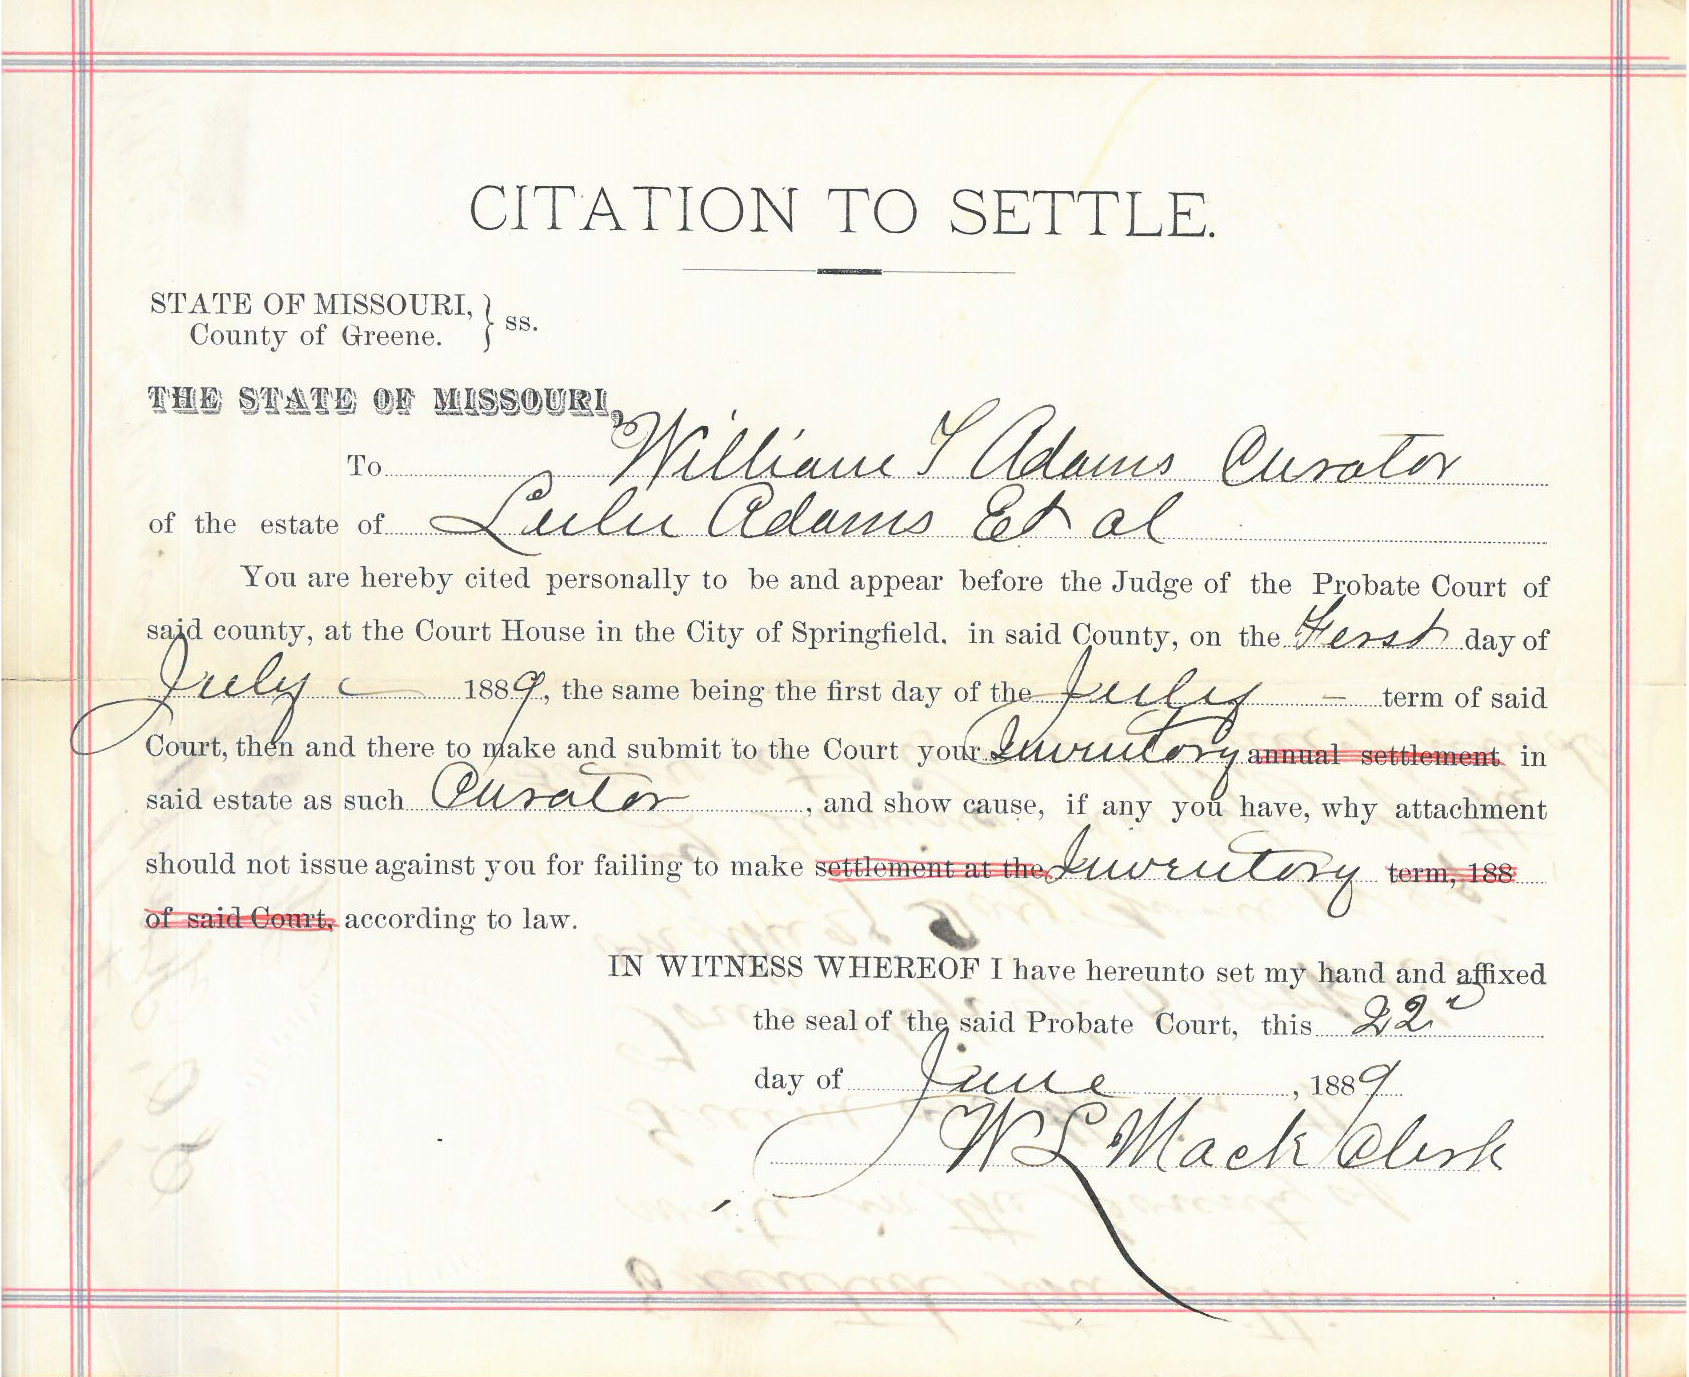 CITATION TO SETTLE.
STATE OF MISSOURI, } ss.
County of Greene.
THE STATE OF MISSOURI,
To William T Adams Curator
of the estate of Lulu Adams Et al
You are hereby cited personally to be and appear before the Judge of the Probate Court of
said county, at the Court House in the City of Springfield, in said County, on the First day of
July 1889, the same being the first day of the July - term of said
Court, then and there to make and submit to the Court your Inventory annual settlement in
said estate as such Curator, and show cause, if any you have, why attachment
should not issue against you for failing to make settlement at the Inventory term, 188
of said Court, according to law.
IN WITNESS WHEREOF I have hereunto set my hand and affixed
the seal of the said Probate Court, this 22d
day of June, 1889
W L Mack Clerk